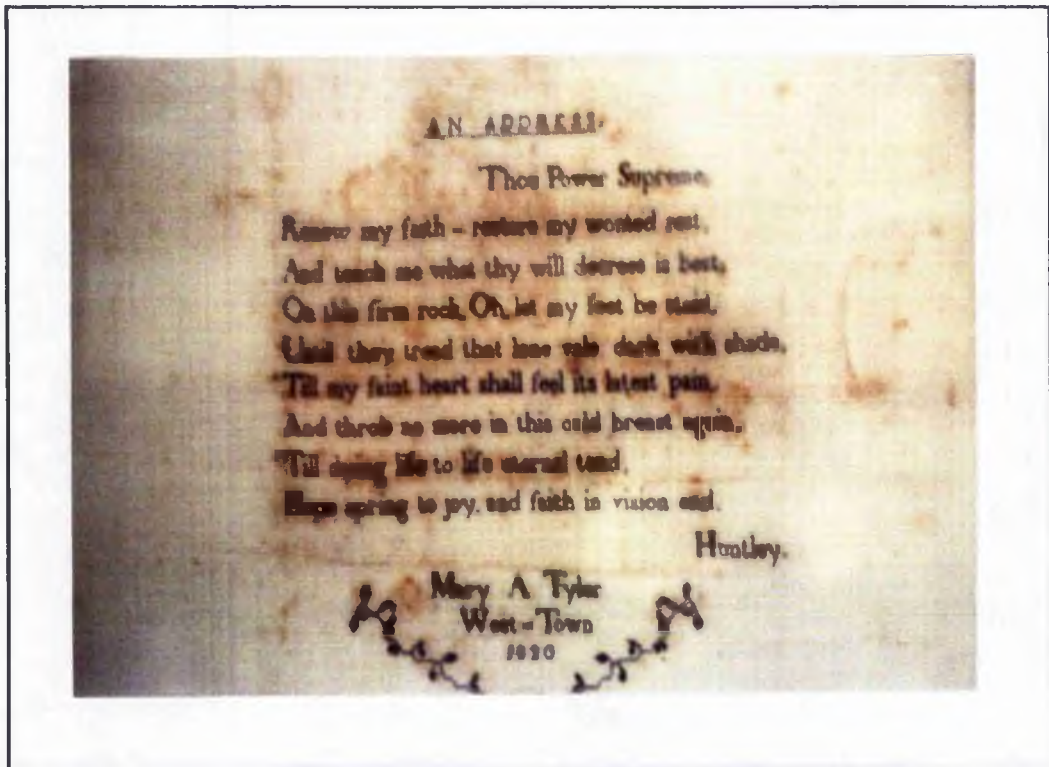 AN APPEAL.
Thou Power Supreme,
Renew my faith - restore my wonted rest,
And teach me what thy will decrees is best,
On this firm rock, Oh, let my feet be staid,
Until they tread that lone vale dark with shade,
'Till my faint heart shall feel its latest pain,
And throb no more in this cold breast again,
'Till dying life to life eternal tend,
Hope spring to joy, and faith in vision end.
Huntley.
Mary A Tyler
West-Town